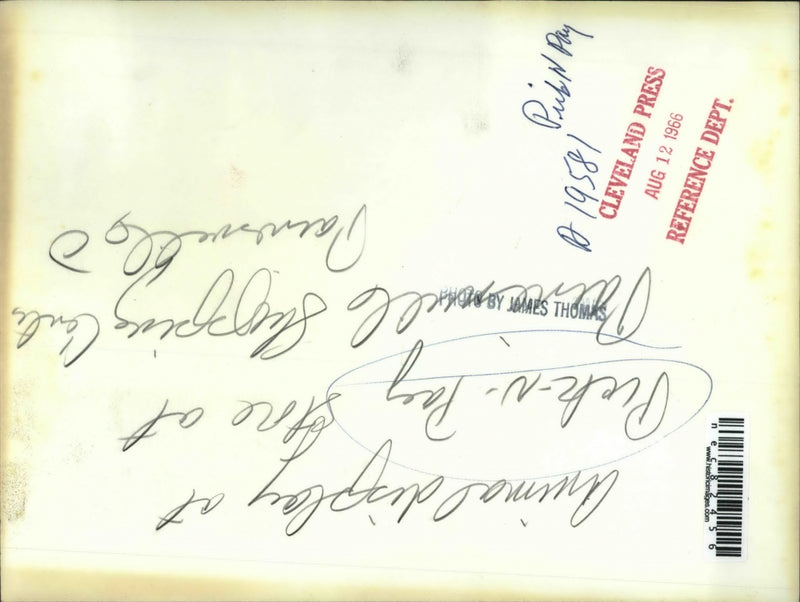 Animal display at
Pick-N-Pay Store at
Painesville Shopping Center
Painesville O
PHOTO BY JAMES THOMAS
D 19581 Pick N Pay
CLEVELAND PRESS
AUG 12 1966
REFERENCE DEPT.
www.historicimages.com
nec82456